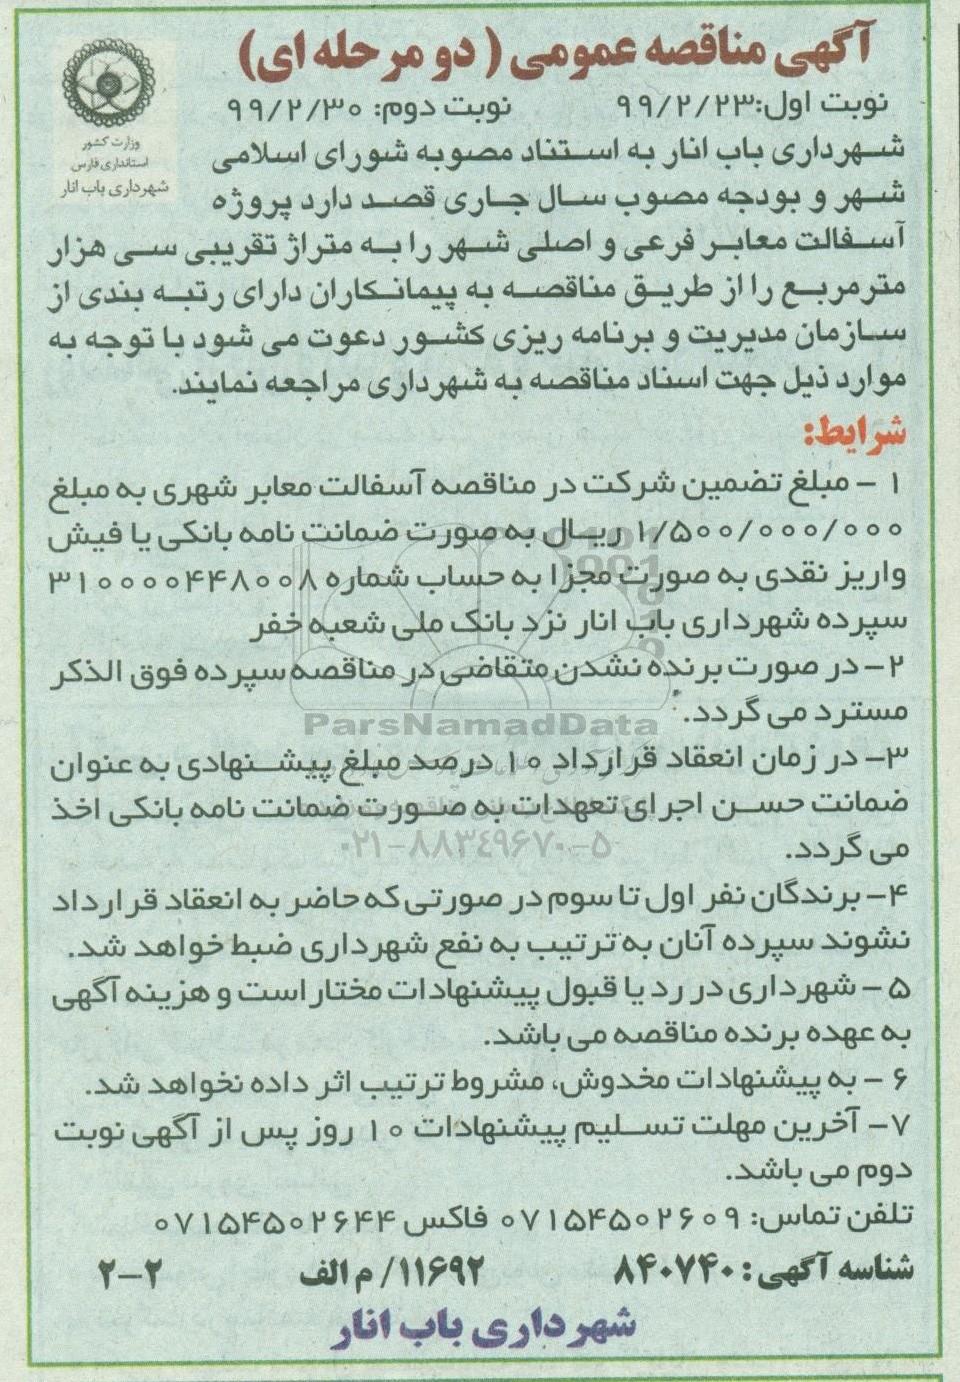 آگهی مناقصه عمومی ( دو مرحله ای)
نوبت اول:۹۹/۲/۲۳ نوبت دوم: ۹۹/۲/۳۰
وزارت کشور
استانداری فارس
شهرداری باب انار
شهرداری باب انار به استناد مصوبه شورای اسلامی
شهر و بودجه مصوب سال جاری قصد دارد پروژه
آسفالت معابر فرعی و اصلی شهر را به متراژ تقریبی سی هزار
مترمربع را از طریق مناقصه به پیمانکاران دارای رتبه بندی از
سازمان مدیریت و برنامه ریزی کشور دعوت می شود با توجه به
موارد ذیل جهت اسناد مناقصه به شهرداری مراجعه نمایند.
شرایط:
۱ - مبلغ تضمین شرکت در مناقصه آسفالت معابر شهری به مبلغ
۱/۵۰۰/۰۰۰/۰۰۰ ریال به صورت ضمانت نامه بانکی یا فیش
واریز نقدی به صورت مجزا به حساب شماره ۳۱۰۰۰۰۴۴۸۰۰۸
سپرده شهرداری باب انار نزد بانک ملی شعبه خفر
۲- در صورت برنده نشدن متقاضی در مناقصه سپرده فوق الذکر
مسترد می گردد.
ParsNamadData
۳- در زمان انعقاد قرارداد ۱۰ درصد مبلغ پیشنهادی به عنوان
ضمانت حسن اجرای تعهدات به صورت ضمانت نامه بانکی اخذ
می گردد.
۰۲۱-۸۸۳۴۹۶۷۰-۵
۴- برندگان نفر اول تا سوم در صورتی که حاضر به انعقاد قرارداد
نشوند سپرده آنان به ترتیب به نفع شهرداری ضبط خواهد شد.
۵ - شهرداری در رد یا قبول پیشنهادات مختار است و هزینه آگهی
به عهده برنده مناقصه می باشد.
۶ - به پیشنهادات مخدوش، مشروط ترتیب اثر داده نخواهد شد.
۷- آخرین مهلت تسلیم پیشنهادات ۱۰ روز پس از آگهی نوبت
دوم می باشد.
تلفن تماس: ۰۷۱۵۴۵۰۲۶۰۹ فاکس ۰۷۱۵۴۵۰۲۶۴۴
شناسه آگهی: ۸۴۰۷۴۰ ۱۱۶۹۲/ م الف ۲-۲
شهرداری باب انار